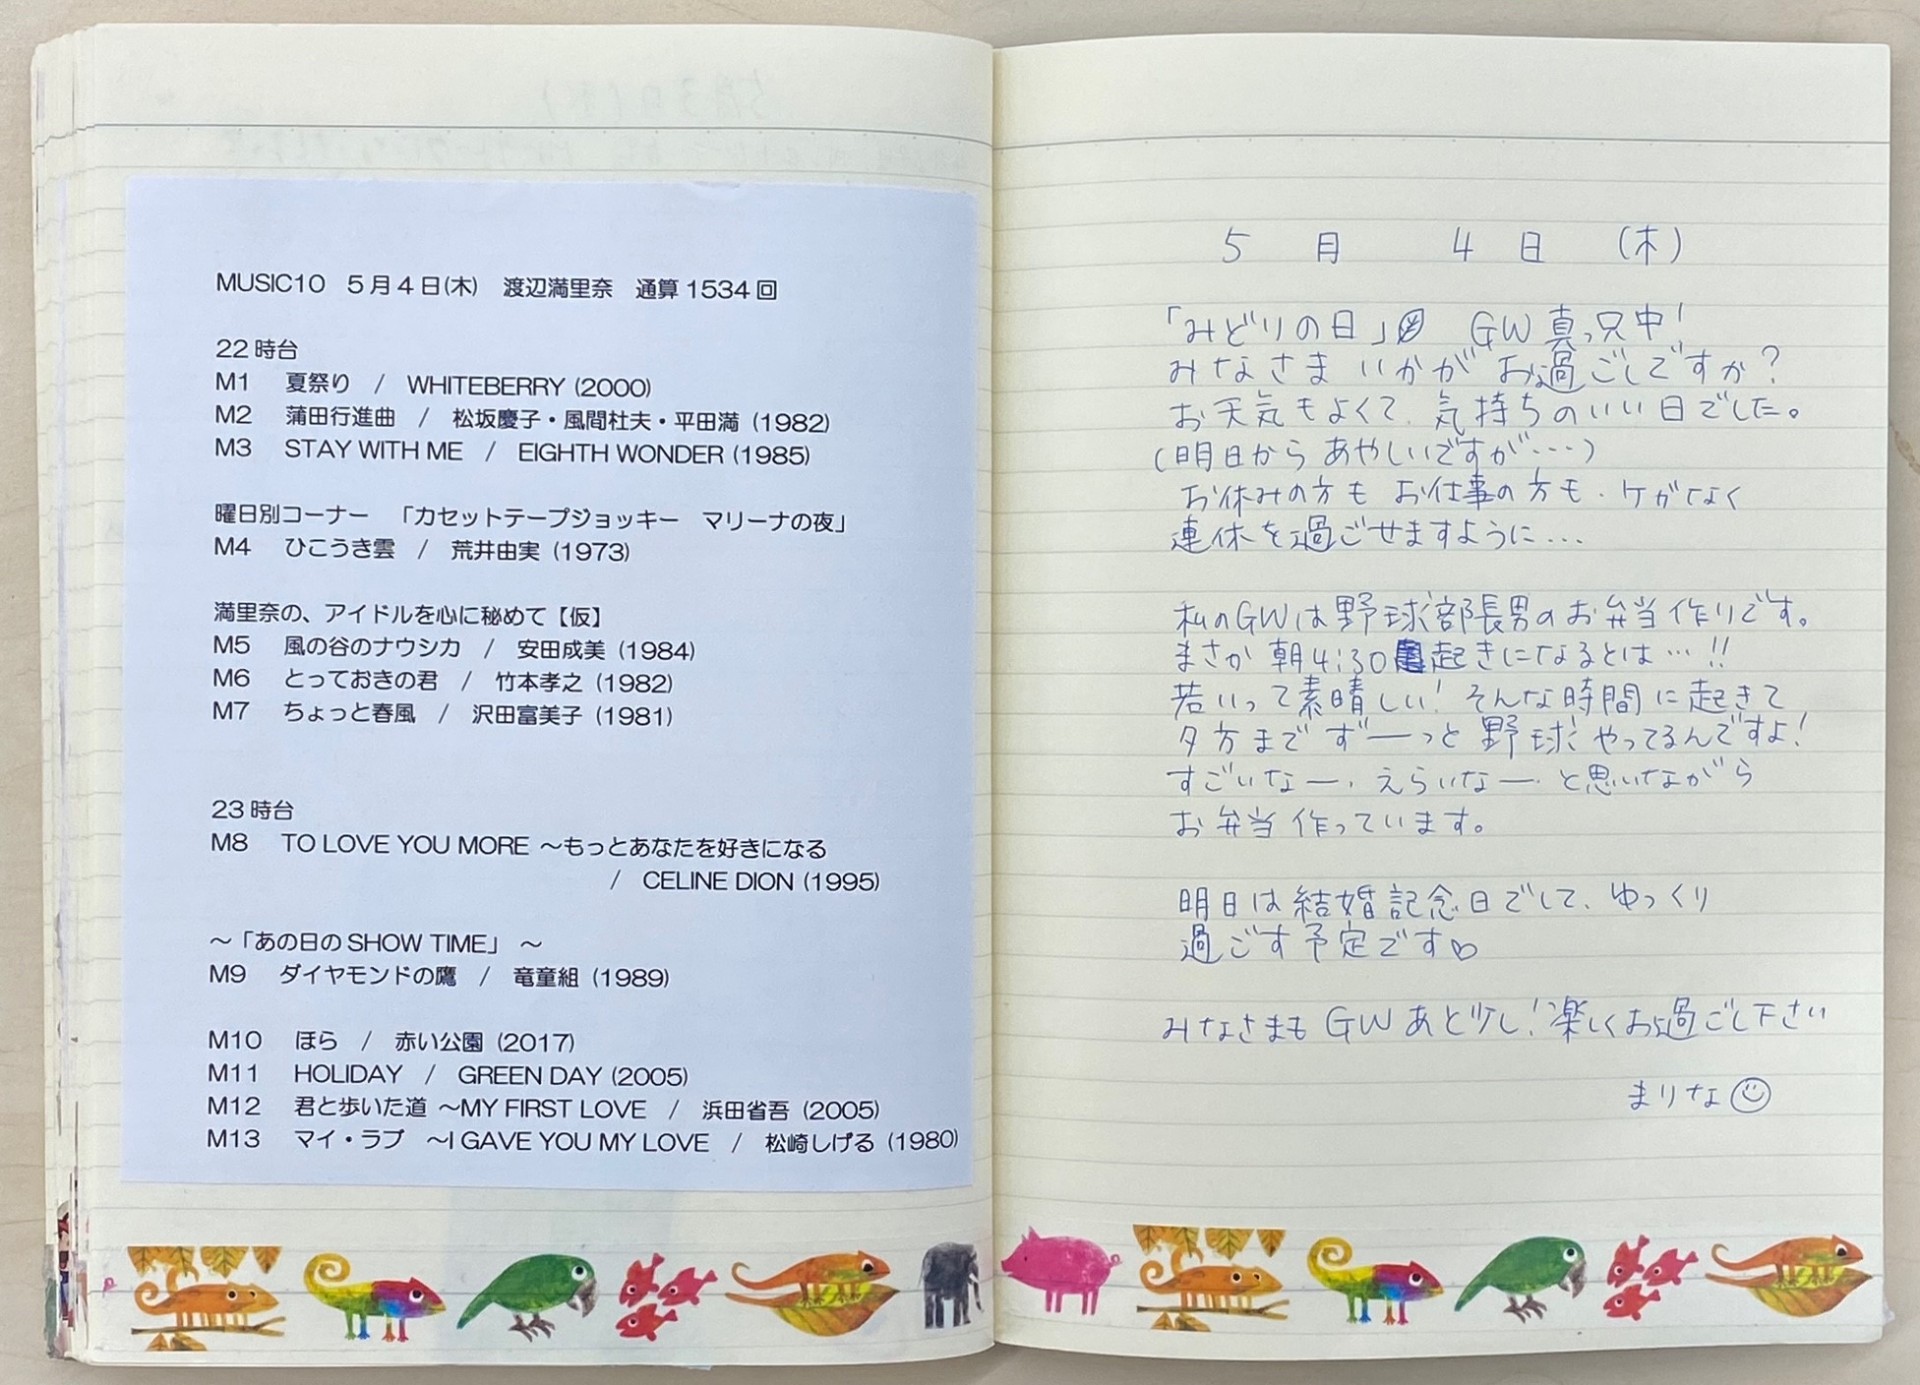 MUSIC10 5月4日(木) 渡辺満里奈 通算1534回
22時台
M1 夏祭り / WHITEBERRY (2000)
M2 蒲田行進曲 / 松坂慶子・風間杜夫・平田満 (1982)
M3 STAY WITH ME / EIGHTH WONDER (1985)
曜日別コーナー 「カセットテープジョッキー マリーナの夜」
M4 ひこうき雲 / 荒井由実 (1973)
満里奈の、アイドルを心に秘めて【仮】
M5 風の谷のナウシカ / 安田成美 (1984)
M6 とっておきの君 / 竹本孝之 (1982)
M7 ちょっと春風 / 沢田富美子 (1981)
23時台
M8 TO LOVE YOU MORE ～もっとあなたを好きになる
/ CELINE DION (1995)
～「あの日のSHOW TIME」 ～
M9 ダイヤモンドの鷹 / 竜童組 (1989)
M10 ほら / 赤い公園 (2017)
M11 HOLIDAY / GREEN DAY (2005)
M12 君と歩いた道 ～MY FIRST LOVE / 浜田省吾 (2005)
M13 マイ・ラブ ～I GAVE YOU MY LOVE / 松崎しげる (1980)
5月 4日 (木)
「みどりの日」 GW真っ只中!
みなさま いかがお過ごしですか?
お天気もよくて、気持ちのいい日でした。
(明日からあやしいですが…)
お休みの方も お仕事の方も、ケガなく
連休を過ごせますように…
私のGWは野球部長男のお弁当作りです。
まさか朝4:30起きになるとは…!!
若いって素晴しい! そんな時間に起きて
夕方まで ずーっと 野球やってるんですよ!
すごいなー、えらいなー、と思いながら
お弁当作っています。
明日は結婚記念日でして、ゆっくり
過ごす予定です♡
みなさまも GWあと少し! 楽しくお過ごし下さい
まりな☺